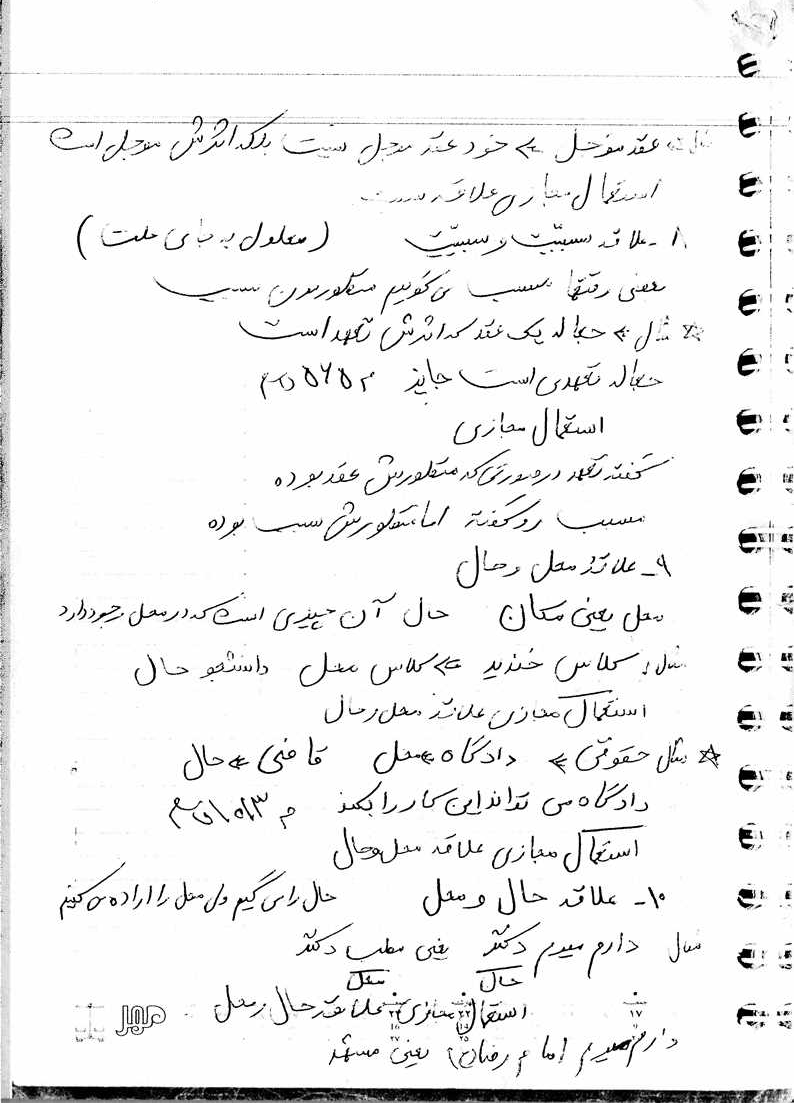 مثال عقد مؤجل => خود عقد مؤجل نیست بلکه اثرش مؤجل است
استعمال مجازی علاقه سببیت
۸ - علاقه مسببیّت و سببیّت (معلول به جای علت)
بعضی وقتها مسبب می گوییم منظورمون سبب
مثال => جعاله یک عقد که اثرش تعهد است
جعاله تعهدی است جایز م ۵۶۵ ق م
استعمال مجازی
گفته تعهد در صورتی که منظورش عقد بوده
مسبب رو گفته اما منظورش سبب بوده
۹ - علاقهٔ محل و حال
محل یعنی مکان حال آن چیزی است که در محل وجود دارد
مثال: کلاس خندید => کلاس محل دانشجو حال
استعمال مجازی علاقهٔ محل و حال
مثال حقوقی => دادگاه => محل قاضی => حال
دادگاه می تواند این کار را بکند م ۱۰۱۳ ق م
استعمال مجازی علاقه محل و حال
۱۰ - علاقه حال و محل حال را می گیم ولی محل را اراده می کنیم
مثال دارم میرم دکتر یعنی مطب دکتر
حال محل
استعمال مجازی علاقه حال و محل
دارم میرم امام رضا یعنی مشهد
مهر
۱۷